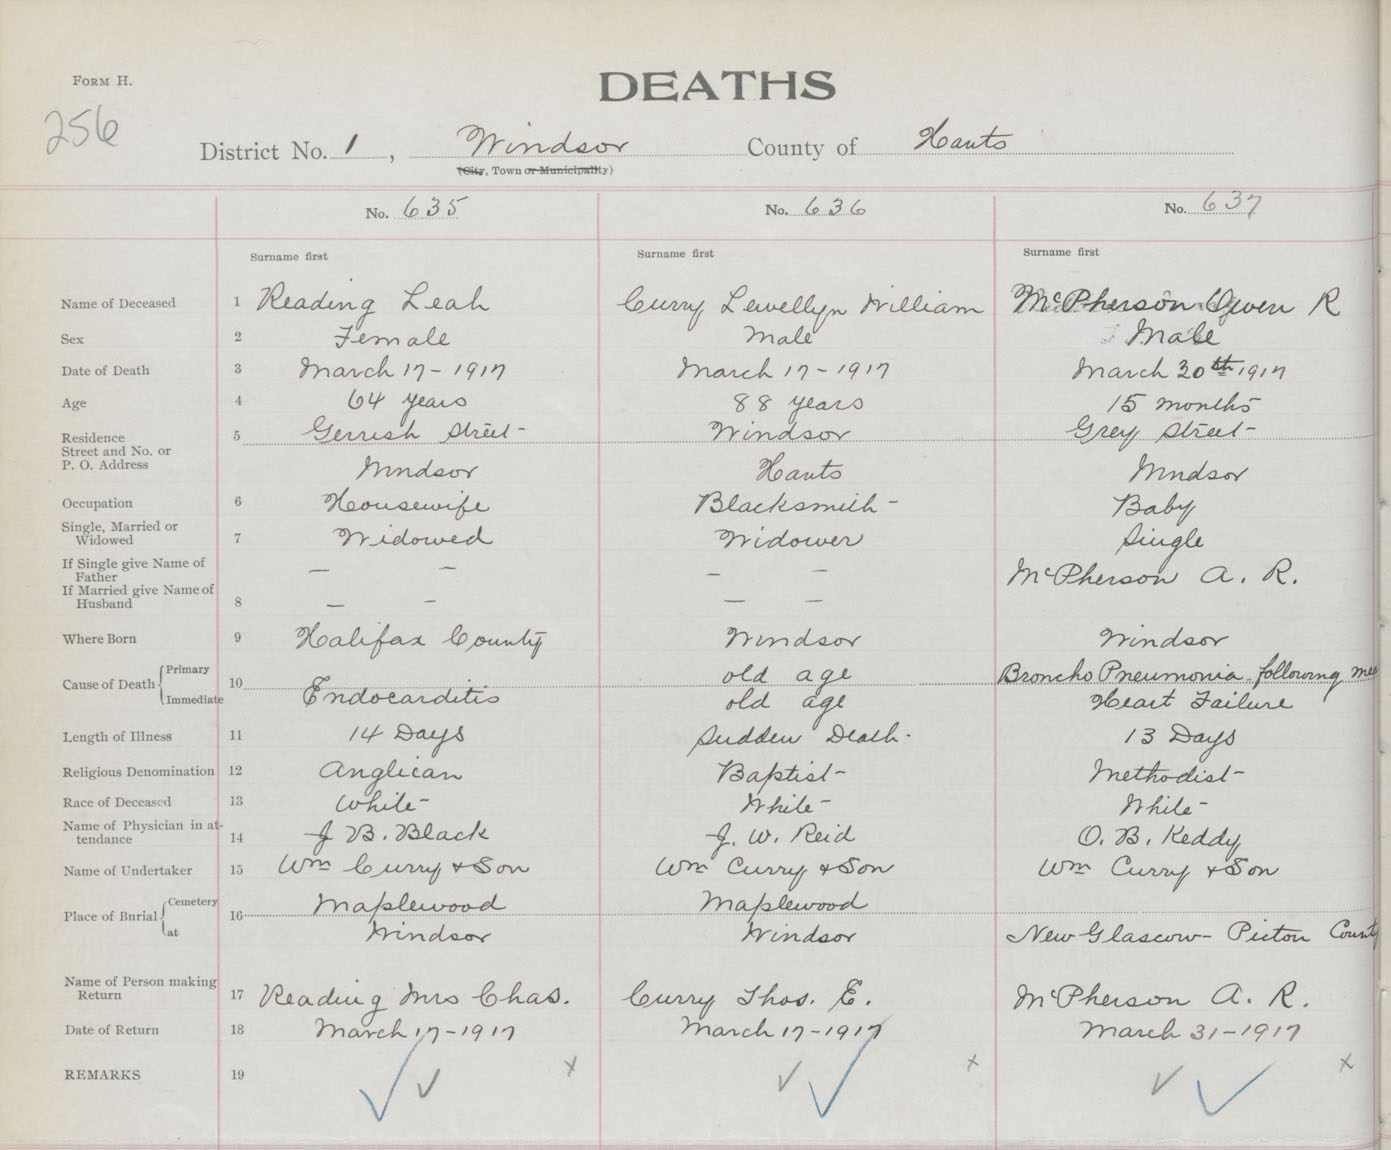 FORM H.
DEATHS
256
District No. 1, Windsor County of Hants
(City, Town or Municipality)
No. 635 No. 636 No. 637
Surname first Surname first Surname first
Name of Deceased 1 Reading Leah Curry Lewellyn William McPherson Owen R
Sex 2 Female Male Male
Date of Death 3 March 17-1917 March 17-1917 March 30th 1917
Age 4 64 years 88 years 15 months
Residence 5 Gerrish Street- Windsor Grey Street-
Street and No. or
P. O. Address Windsor Hants Windsor
Occupation 6 Housewife Blacksmith- Baby
Single, Married or
Widowed 7 Widowed Widower Single
If Single give Name of
Father — — — — McPherson A. R.
If Married give Name of
Husband 8 — — — —
Where Born 9 Halifax County Windsor Windsor
Cause of Death Primary 10 old age Broncho Pneumonia following
Immediate Endocarditis old age Heart Failure
Length of Illness 11 14 Days Sudden Death. 13 Days
Religious Denomination 12 Anglican Baptist- Methodist-
Race of Deceased 13 White- White- White-
Name of Physician in at-
tendance 14 J B. Black J. W. Reid O. B. Keddy
Name of Undertaker 15 Wm Curry + Son Wm Curry + Son Wm Curry + Son
Place of Burial Cemetery 16 Maplewood Maplewood
at Windsor Windsor New Glascow- Pictou County
Name of Person making
Return 17 Reading Mrs Chas. Curry Thos. E. McPherson A. R.
Date of Return 18 March 17-1917 March 17-1917 March 31-1917
REMARKS 19 x x x